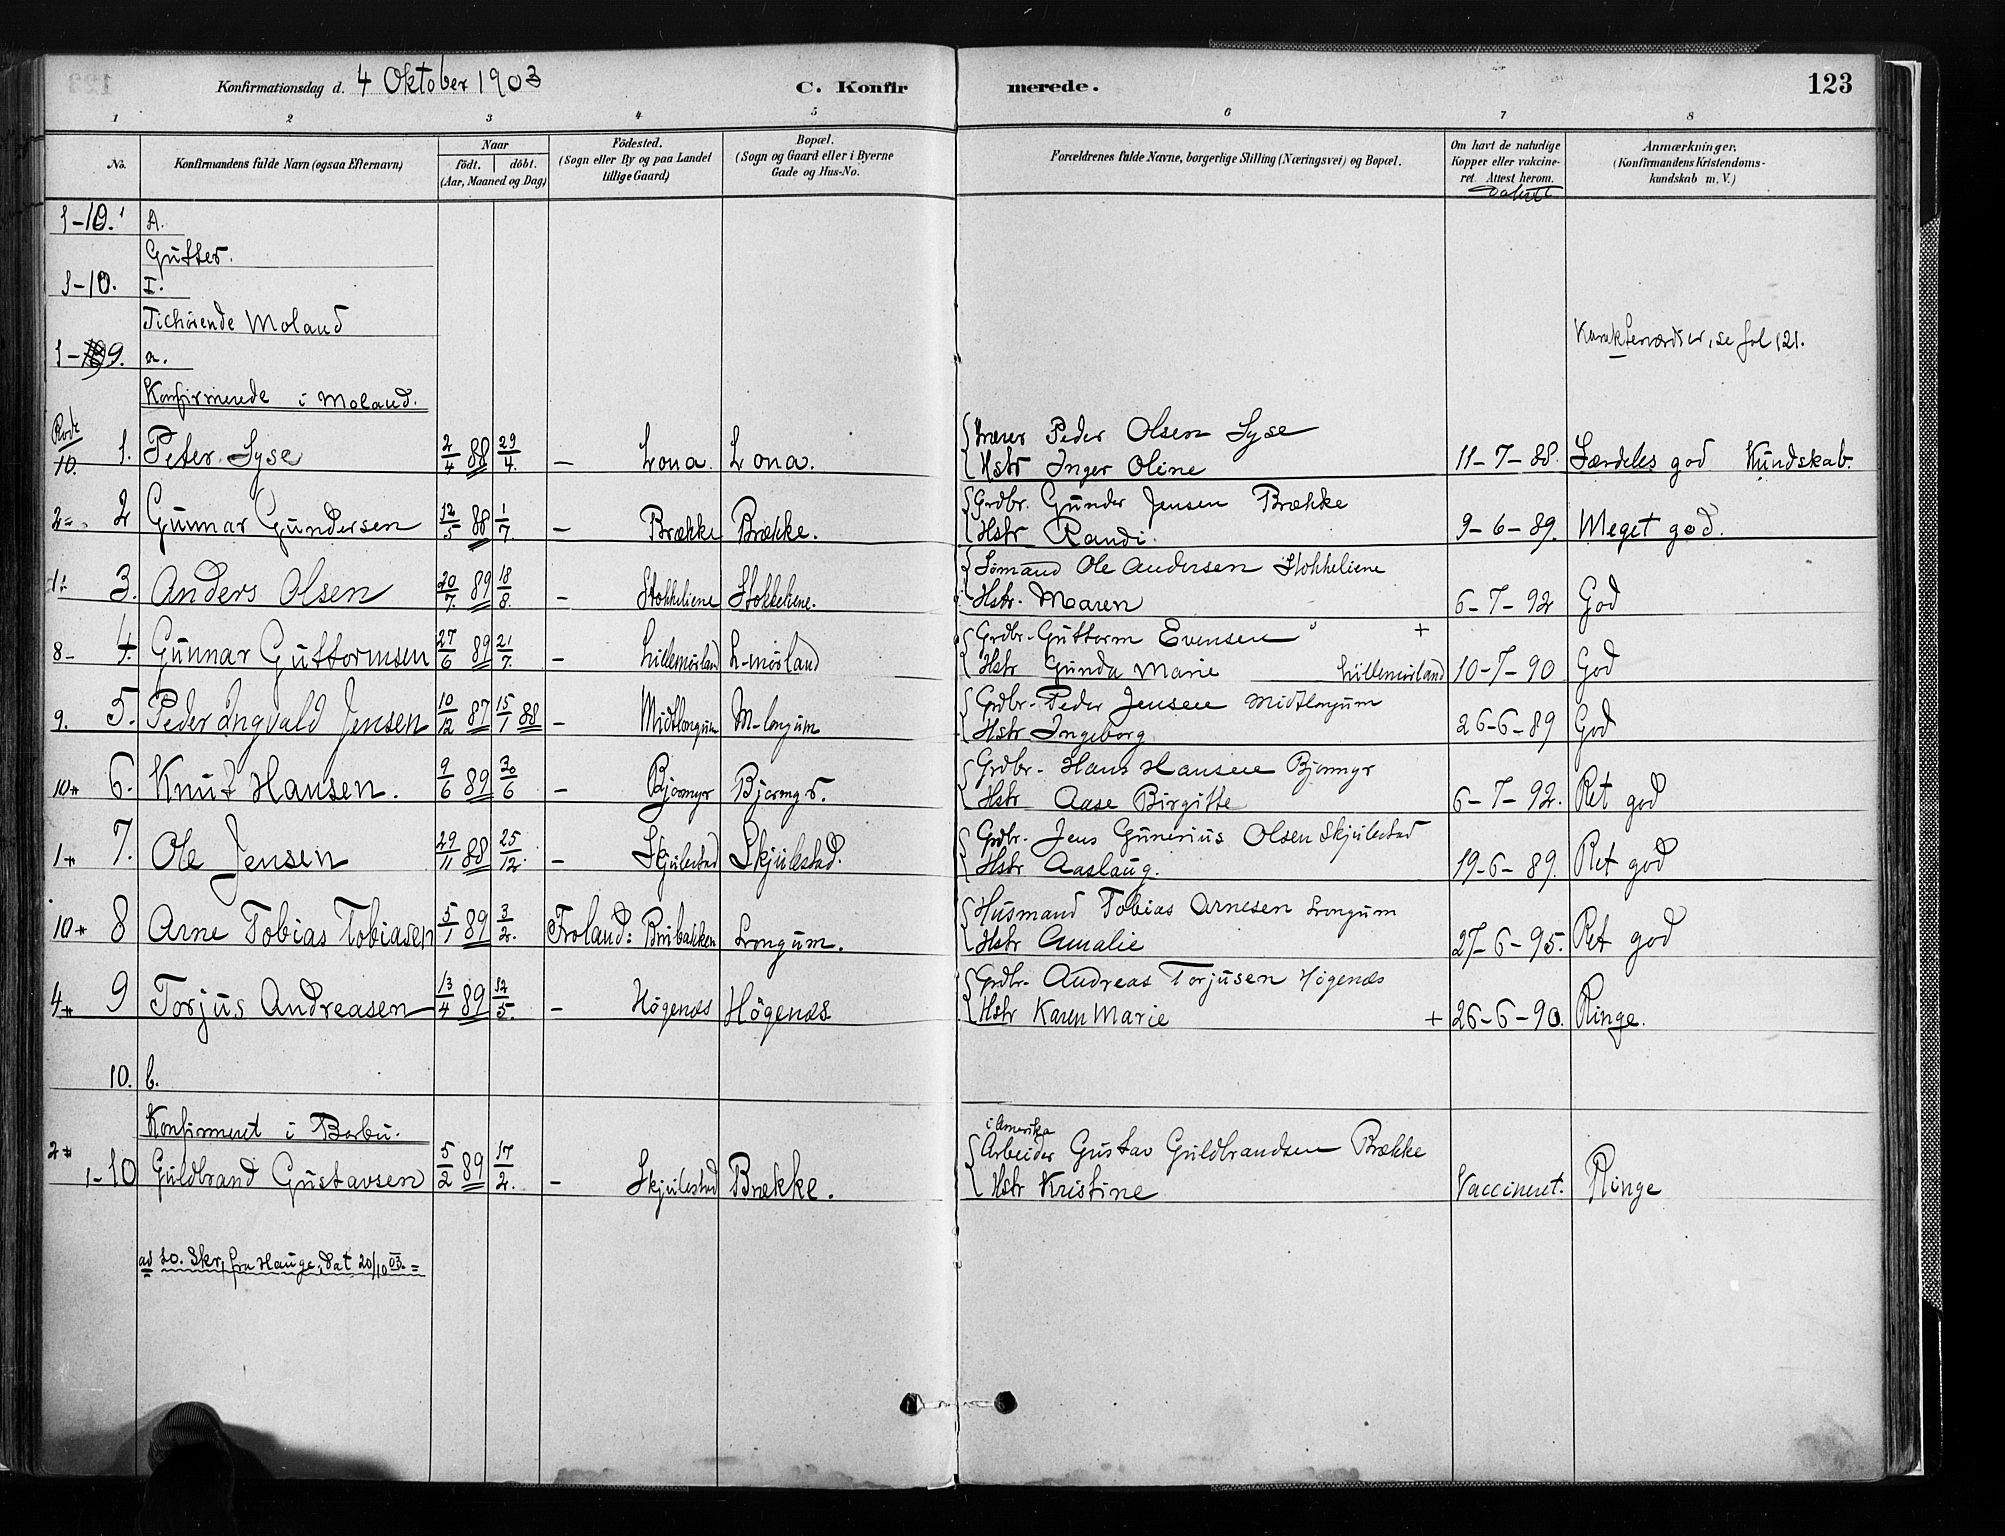 Konfirmationsdag d. 4 Oktober 1903 C. Konfirmerede. 123
1 2 3 4 5 6 7 8
No. Konfirmandens fulde Navn (ogsaa Efternavn) Naar født. døbt. (Aar, Maaned og Dag) Fødested. (Sogn eller By og paa Landet tillige Gaard) Bopæl. (Sogn og Gaard eller i Byerne Gade og Hus-No. Forældrenes fulde Navne, borgerlige Stilling (Næringsvei) og Bopæl. Om havt de naturlige Kopper eller vakcineret. Attest herom. Anmærkninger, (Konfirmandens Kristendomskundskab m. V.)
1-10. A.
Gutter.
1-10. I.
Tilhørende Moland
1-9. a. Karakterværdier, se fol 121.
Konfirmerede i Moland.
Rode
10. 1. Peter Lyse 2/4 88 29/4. — Lona. Lona. Lærer Peder Olsen Lyse
Hstr Inger Oline 11-7-88. Særdeles god Kundskab.
2 2 Gunnar Gundersen 12/5 88 1/7 — Brække Brække. Grdbr. Gunder Jensen Brække
Hstr Randi. 9-6-89. Meget god.
1 3. Anders Olsen 20/7. 89 18/8. — Stokkeliene Stokkeliene. Sømand Ole Andersen Stokkeliene
Hstr. Maren 6-7-92 God
8- 4. Gunnar Guttormsen 27/6 89 21/7. — Lillemørland L-mørland Grdbr. Guttorm Evensen +
Hstr Gunda Marie Lillemørland 10-7-90 God
9. 5. Peder Ingvald Jensen 10/12 87 15/1 88 — Midtlongum M-longum Grdbr. Peder Jensen Midtlongum
Hstr Ingeborg 26-6-89 God
10 6. Knut Hansen. 9/6 89 30/6 — Bjormyr Bjormyr. Grdbr. Hans Hansen Bjormyr
Hstr Aase Birgitte 6-7-92. Ret god
1 7. Ole Jensen 29/11 88 25/12. — Skjulestad Skjulestad. Grdbr. Jens Gunerius Olsen Skjulestad
Hstr Aaslaug. 19-6-89. Ret god
10 8 Arne Tobias Tobiasen 5/1 89 3/2. Froland: Brubakken Longum. Husmand Tobias Arnesen Longum
Hstr Amalie 27-6-95. Ret god
4 9 Torjus Andreasen 13/4 89 12/5. — Høgenæs Høgenæs Grdbr. Andreas Torjusen Høgenæs
Hstr Karen Marie + 26-6-90. Ringe.
10. b.
Konfirmeret i Barbu.
2 1-10 Guldbrand Gustavsen 5/2 89 17/2. — Skjulestad Brække. i Amerika
Arbeider Gustav Guldbrandsen Brække
Hstr Kristine Vaccineret. Ringe
ad 10. Skr, fra Hauge, dat 20/10 03. =